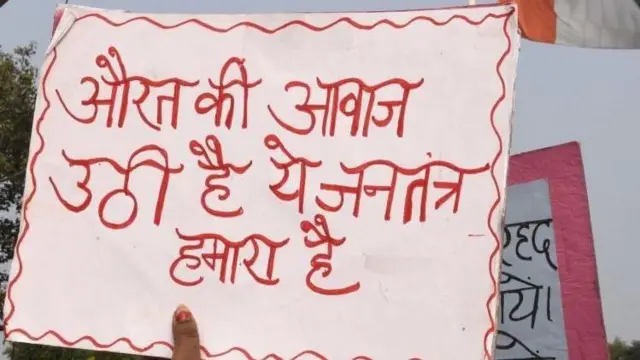 औरत की आवाज
उठी है ये जनतंत्र
हमारा है